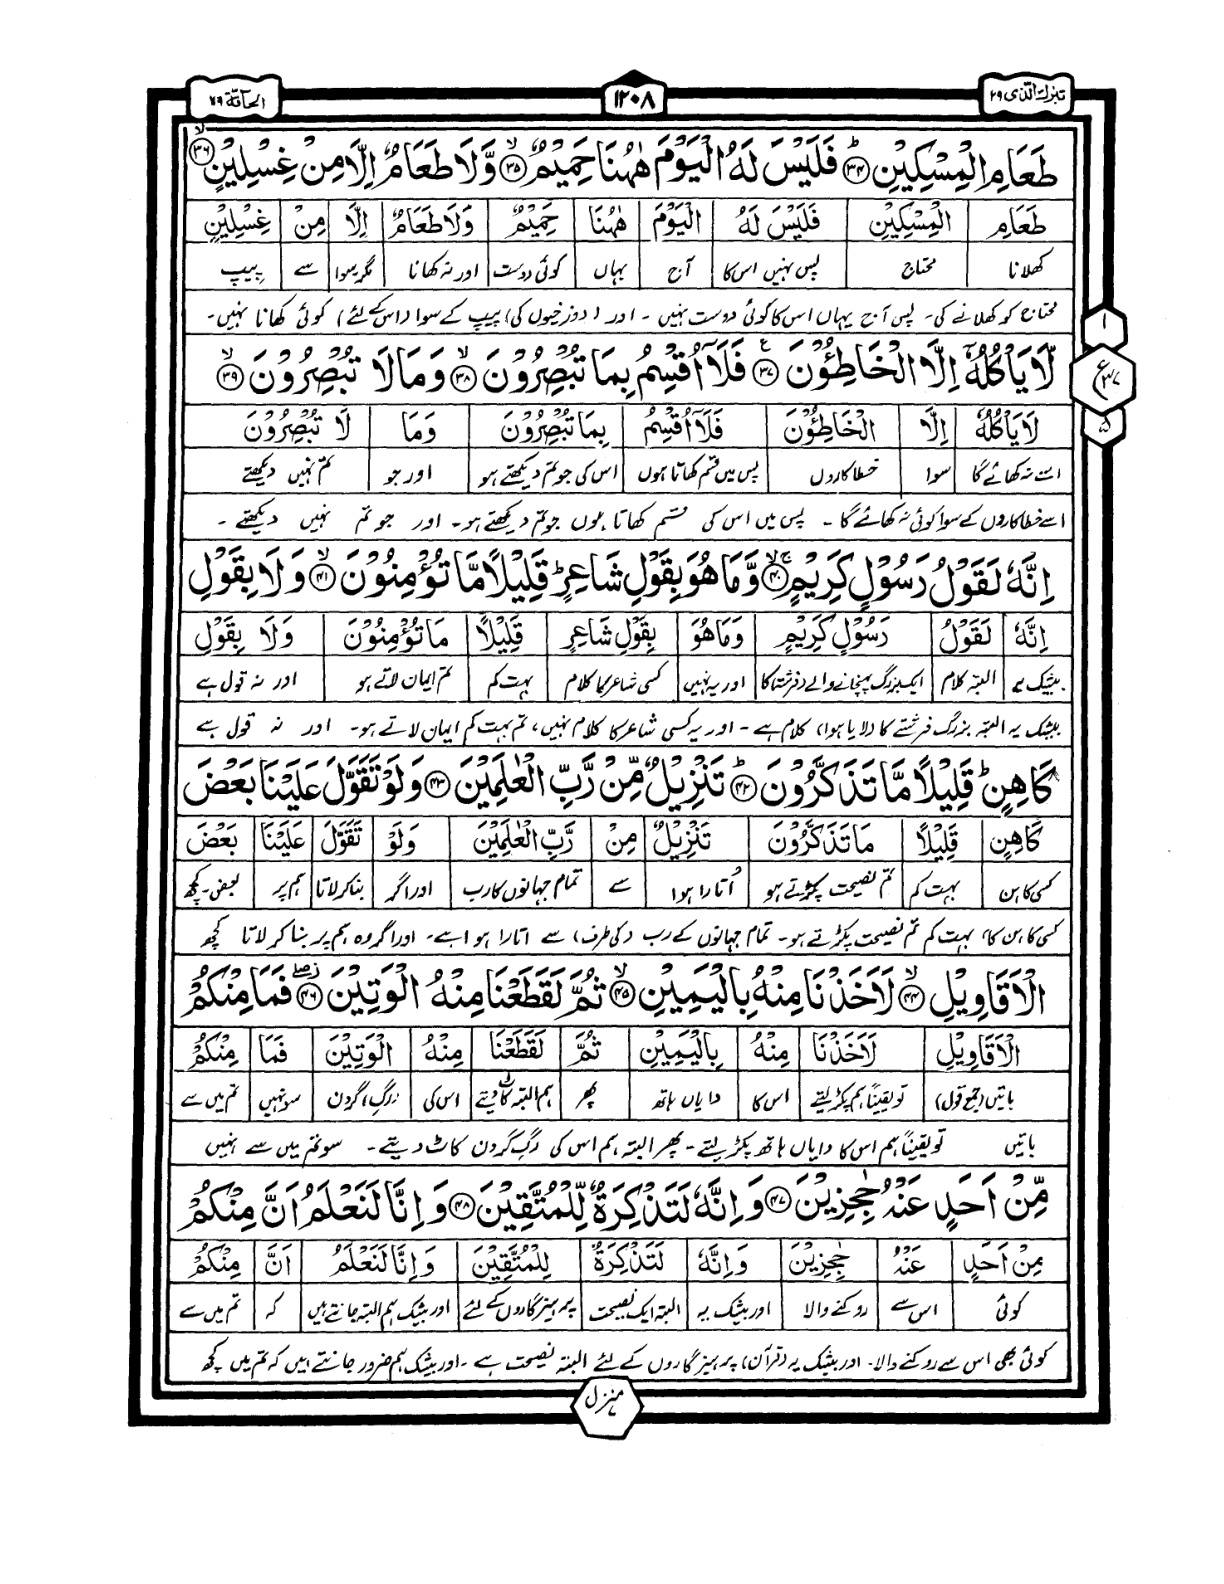 تبٰرك الّذی ۲۹
۱۲۰۸
الحآقّة ۶۹
طَعَامِ الْمِسْكِيْنِ ؕ﴿۳۴﴾ فَلَيْسَ لَهُ الْيَوْمَ هٰهُنَا حَمِيْمٌ ۙ﴿۳۵﴾ وَّلَا طَعَامٌ اِلَّا مِنْ غِسْلِيْنٍ ۙ﴿۳۶﴾
طَعَامِ الْمِسْكِيْنِ فَلَيْسَ لَهُ الْيَوْمَ هٰهُنَا حَمِيْمٌ وَلَا طَعَامٌ اِلَّا مِنْ غِسْلِيْنٍ
کھلانا محتاج پس نہیں اس کا آج یہاں کوئی دوست اور نہ کھانا مگر سوا سے پیپ
محتاج کو کھلانے کی۔ پس آج یہاں اس کا کوئی دوست نہیں ۔ اور (دوزخیوں کی) پیپ کے سوا (اس کے لئے) کوئی کھانا نہیں۔
لَّا يَاْكُلُهٗۤ اِلَّا الْخَاطِـُٔوْنَ ۠﴿۳۷﴾ فَلَاۤ اُقْسِمُ بِمَا تُبْصِرُوْنَ ۙ﴿۳۸﴾ وَمَا لَا تُبْصِرُوْنَ ۙ﴿۳۹﴾
لَا يَاْكُلُهٗۤ اِلَّا الْخَاطِـُٔوْنَ فَلَاۤ اُقْسِمُ بِمَا تُبْصِرُوْنَ وَمَا لَا تُبْصِرُوْنَ
اسے نہ کھائے گا سوا خطاکاروں پس میں قسم کھاتا ہوں اس کی جو تم دیکھتے ہو اور جو تم نہیں دیکھتے
اسے خطاکاروں کے سوا کوئی نہ کھائے گا ۔ پس میں اس کی قسم کھاتا ہوں جو تم دیکھتے ہو۔ اور جو تم نہیں دیکھتے ۔
اِنَّهٗ لَقَوْلُ رَسُوْلٍ كَرِيْمٍ ۚۙ﴿۴۰﴾ وَّمَا هُوَ بِقَوْلِ شَاعِرٍ ؕ قَلِيْلًا مَّا تُؤْمِنُوْنَ ۙ﴿۴۱﴾ وَلَا بِقَوْلِ
اِنَّهٗ لَقَوْلُ رَسُوْلٍ كَرِيْمٍ وَمَا هُوَ بِقَوْلِ شَاعِرٍ قَلِيْلًا مَا تُؤْمِنُوْنَ وَلَا بِقَوْلِ
بیشک یہ البتہ کلام ایک بزرگ پہنچانے والے (فرشتہ) کا اور یہ نہیں کسی شاعر کا کلام بہت کم تم ایمان لاتے ہو اور نہ قول ہے
بیشک یہ البتہ بزرگ فرشتے کا (لایا ہوا) کلام ہے ۔ اور یہ کسی شاعر کا کلام نہیں، تم بہت کم ایمان لاتے ہو۔ اور نہ قول ہے
كَاهِنٍ ؕ قَلِيْلًا مَّا تَذَكَّرُوْنَ ؕ﴿۴۲﴾ تَنْزِيْلٌ مِّنْ رَّبِّ الْعٰلَمِيْنَ ﴿۴۳﴾ وَلَوْ تَقَوَّلَ عَلَيْنَا بَعْضَ
كَاهِنٍ قَلِيْلًا مَا تَذَكَّرُوْنَ تَنْزِيْلٌ مِنْ رَّبِّ الْعٰلَمِيْنَ وَلَوْ تَقَوَّلَ عَلَيْنَا بَعْضَ
کسی کاہن بہت کم تم نصیحت پکڑتے ہو اُتارا ہوا سے تمام جہانوں کا رب اور اگر بنا کر لاتا ہم پر بعض۔کچھ
کسی کاہن کا، بہت کم تم نصیحت پکڑتے ہو۔ تمام جہانوں کے رب (کی طرف) سے اتارا ہوا ہے۔ اور اگر وہ ہم پر بنا کر لاتا کچھ
الْاَقَاوِيْلِ ۙ﴿۴۴﴾ لَاَخَذْنَا مِنْهُ بِالْيَمِيْنِ ۙ﴿۴۵﴾ ثُمَّ لَقَطَعْنَا مِنْهُ الْوَتِيْنَ ۖؗ﴿۴۶﴾ فَمَا مِنْكُمْ
الْاَقَاوِيْلِ لَاَخَذْنَا مِنْهُ بِالْيَمِيْنِ ثُمَّ لَقَطَعْنَا مِنْهُ الْوَتِيْنَ فَمَا مِنْكُمْ
باتیں (جمع قول) تو یقیناً ہم پکڑ لیتے اس کا دایاں ہاتھ پھر ہم البتہ کاٹ دیتے اس کی رگِ گردن سو نہیں تم میں سے
باتیں تو یقیناً ہم اس کا دایاں ہاتھ پکڑ لیتے۔ پھر البتہ ہم اس کی رگِ گردن کاٹ دیتے۔ سو تم میں سے نہیں
مِّنْ اَحَدٍ عَنْهُ حٰجِزِيْنَ ﴿۴۷﴾ وَاِنَّهٗ لَتَذْكِرَةٌ لِّلْمُتَّقِيْنَ ﴿۴۸﴾ وَاِنَّا لَنَعْلَمُ اَنَّ مِنْكُمْ
مِنْ اَحَدٍ عَنْهُ حٰجِزِيْنَ وَاِنَّهٗ لَتَذْكِرَةٌ لِلْمُتَّقِيْنَ وَاِنَّا لَنَعْلَمُ اَنَّ مِنْكُمْ
کوئی اس سے روکنے والا اور بیشک یہ البتہ ایک نصیحت پرہیزگاروں کے لئے اور بیشک ہم البتہ جانتے ہیں کہ تم میں سے
کوئی بھی اس سے روکنے والا۔ اور بیشک یہ (قرآن) پرہیزگاروں کے لئے البتہ نصیحت ہے ۔ اور بیشک ہم ضرور جانتے ہیں کہ تم میں کچھ
۱
ع
۳۷
۵
منزل ۷